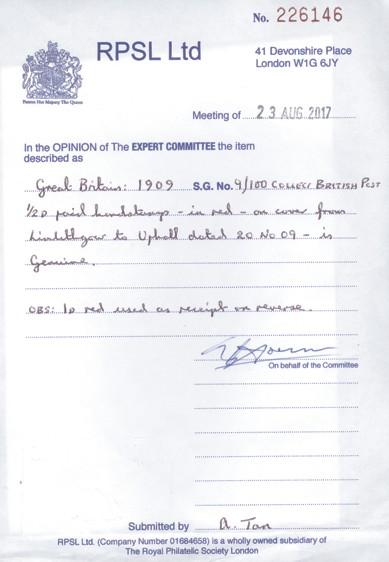 No. 226146
RPSL Ltd
41 Devonshire Place
London W1G 6JY
Patron Her Majesty The Queen
Meeting of 23 AUG 2017
In the OPINION of The EXPERT COMMITTEE the item
described as
Great Britain: 1909 S.G. No. 9/100 COLLECT BRITISH POST
½D paid handstamp - in red - on cover from
Linlithgow to Uphall dated 20 No 09 - is
Genuine.
OBS: 1D red used as receipt on reverse.
On behalf of the Committee
Submitted by A. Tan
RPSL Ltd. (Company Number 01684658) is a wholly owned subsidiary of
The Royal Philatelic Society London